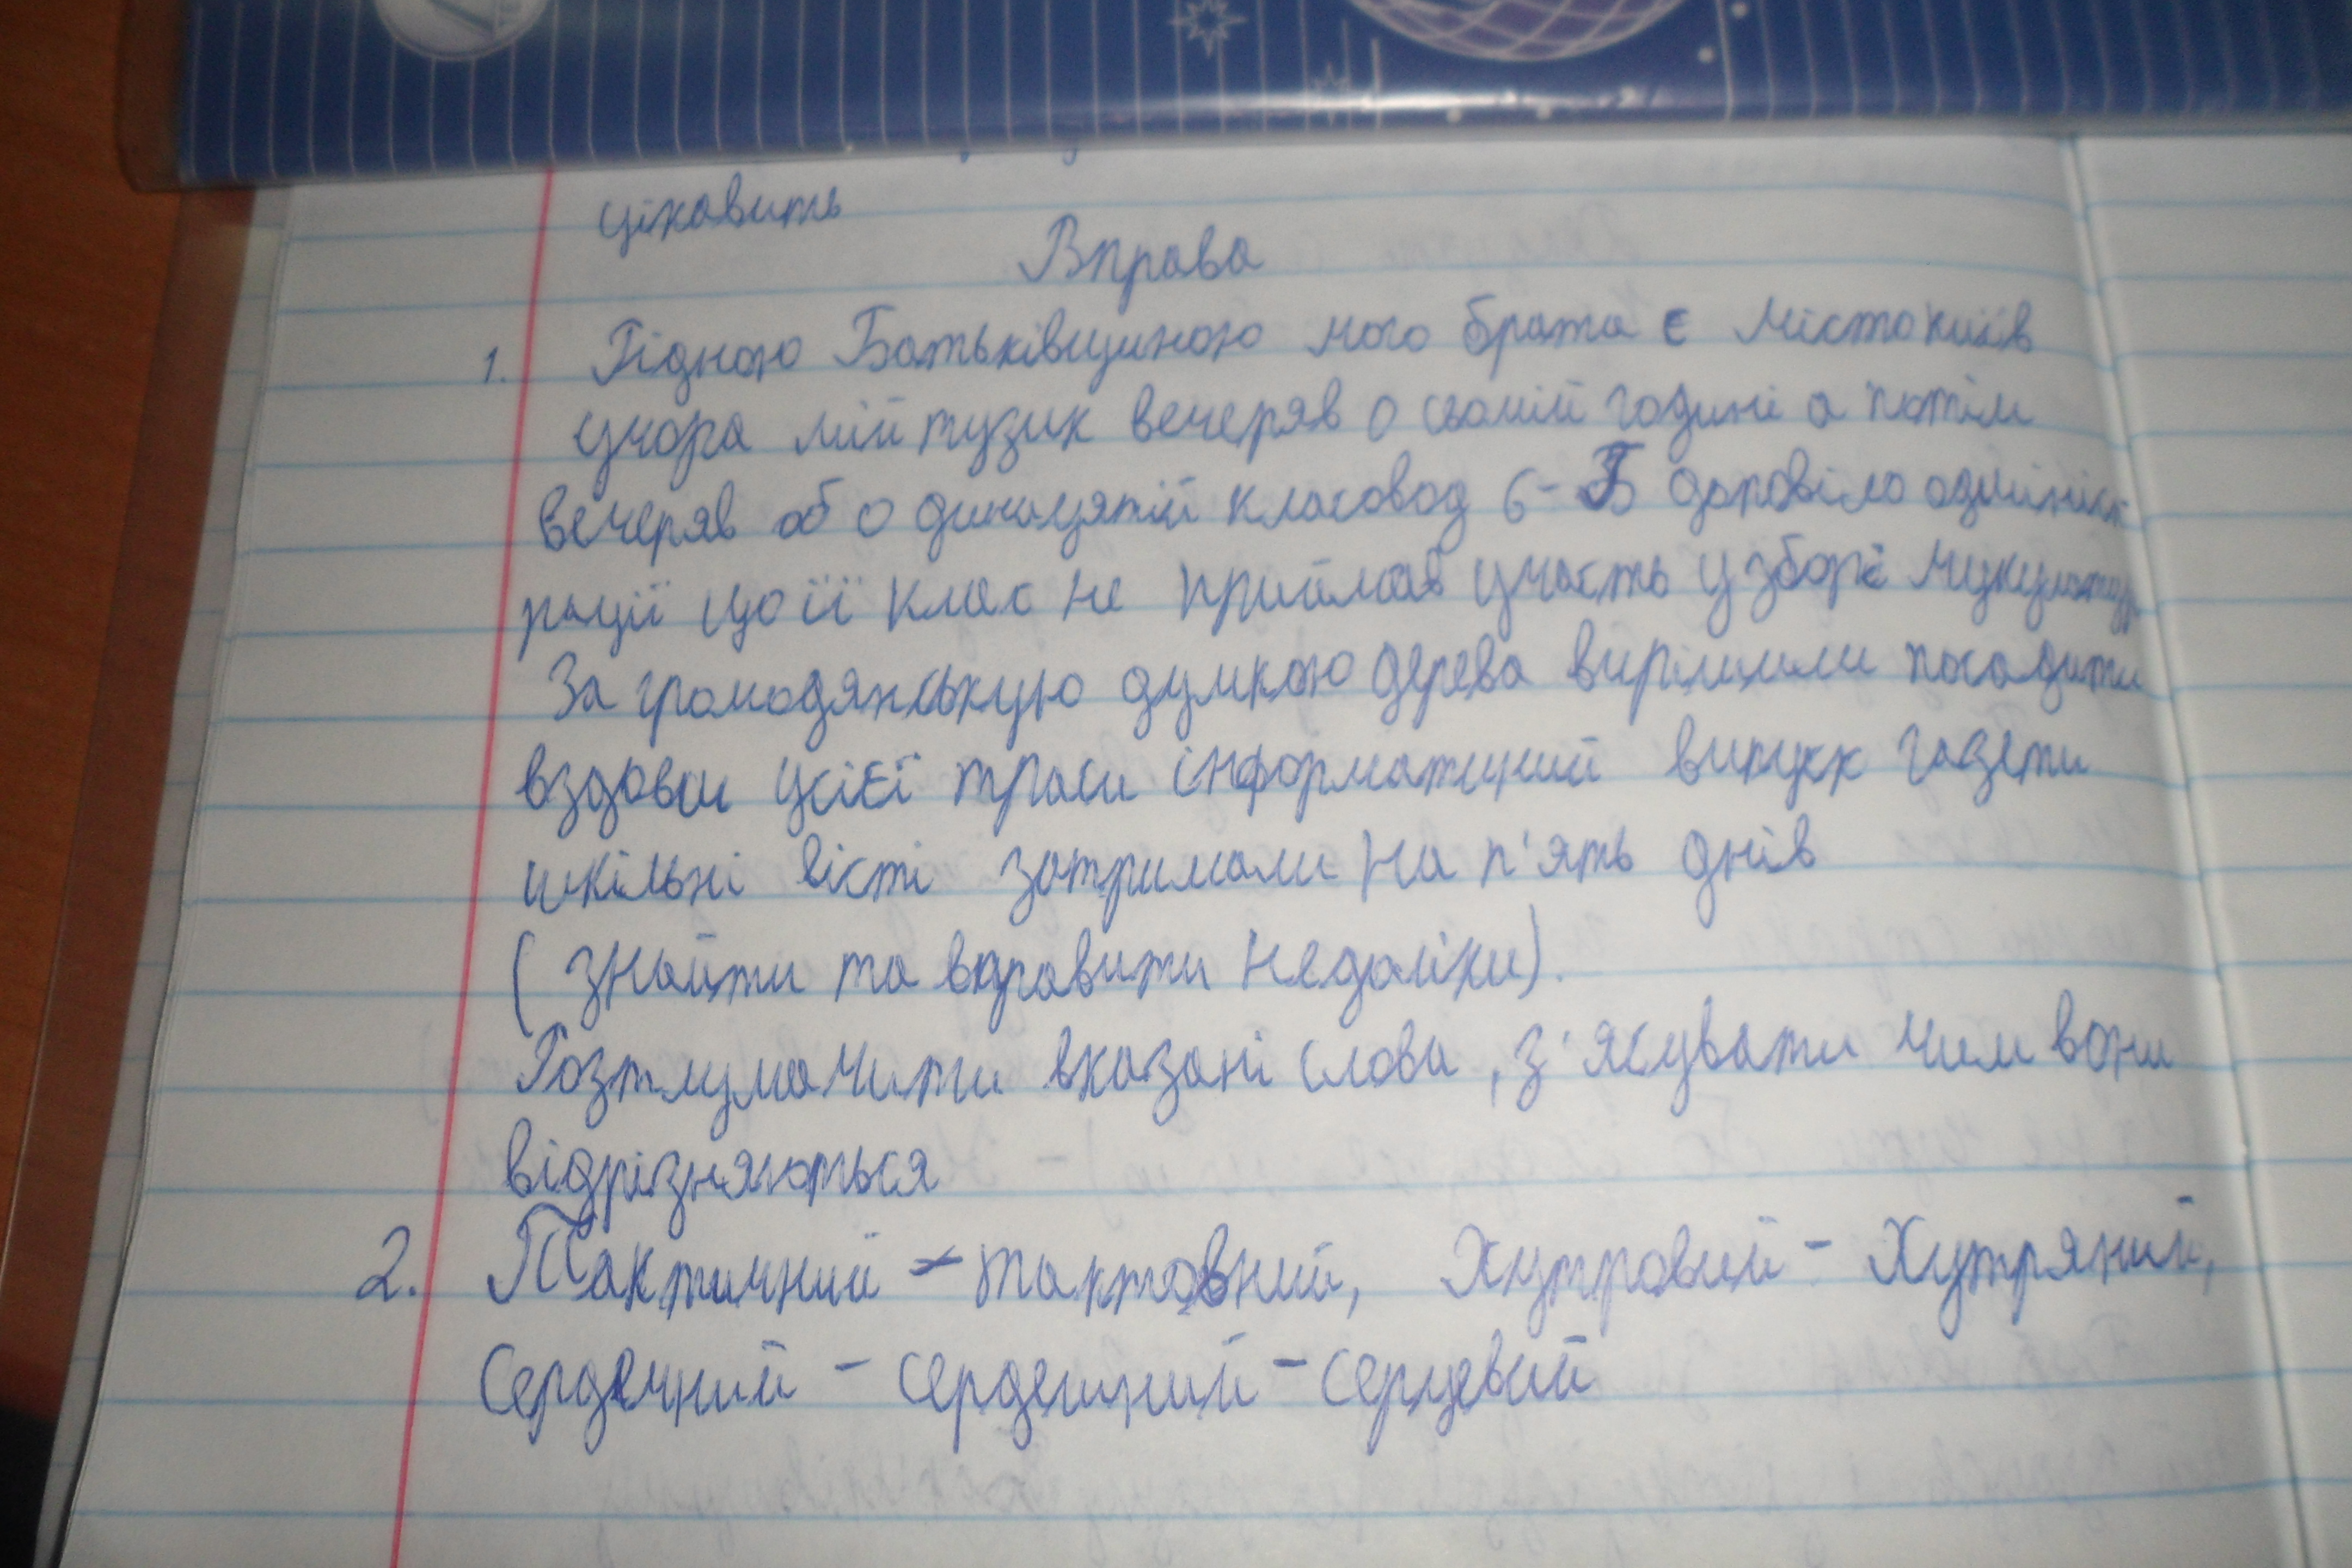 цікавить
Вправа
1. Рідною Батьківщиною мого брата є місто київ
учора мій тузик вечеряв о сьомій годині а потім
вечеряв об о динацятій класовод 6-Б доповіла адмініст
рації що її клас не приймав участь у зборі мукулатур
За громодянською думкою дерева вирішили посадити
вздовш усієї траси інформатиций випукк газети
шкільні вісті затримали на п'ять днів
(знайти та вправити недоліки).
Розтлумачити вказані слова, з'ясувати чим вони
відрізняються
2. Тактичний - тактовний, Хутровий - Хутряний,
Сердечний - сердешний - серцевий